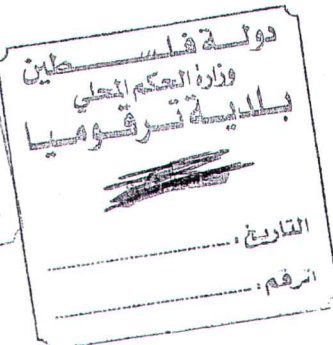 دولة فلسطين
وزارة الحكم المحلي
بلدية ترقوميا
التاريخ:
الرقم: